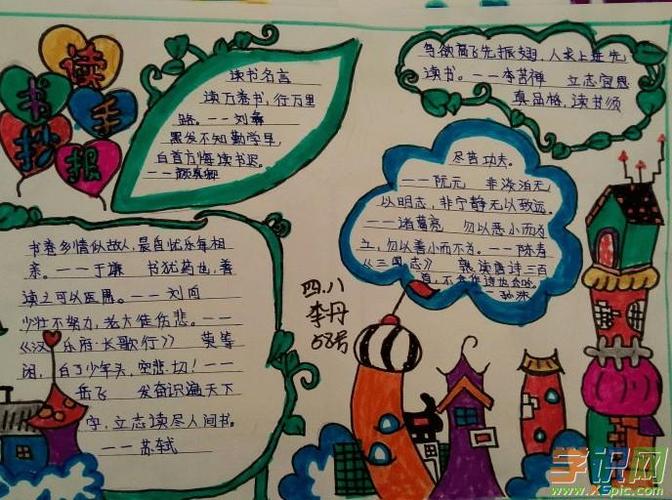 读书手抄报
读书名言
读万卷书，行万里
路。——刘彝
黑发不知勤学早，
白首方悔读书迟。
——颜真卿
鸟欲高飞先振翅，人求上进先
读书。——李苦禅 立志宜思
真品格，读书须
尽苦功夫。
——阮元 非淡泊无
以明志，非宁静无以致远。
——诸葛亮 勿以恶小而为
之，勿以善小而不为。——陈寿
《三国志》 熟读唐诗三百
首，不会作诗也会吟。
——孙洙
书卷多情似故人，晨昏忧乐每相
亲。——于谦 书犹药也，善
读之可以医愚。——刘向
少壮不努力，老大徒伤悲。——
《汉乐府·长歌行》 莫等
闲，白了少年头，空悲切！——
岳飞 发奋识遍天下
字，立志读尽人间书。
——苏轼
四.八
李丹
58号
学识网
www.XSpic.com